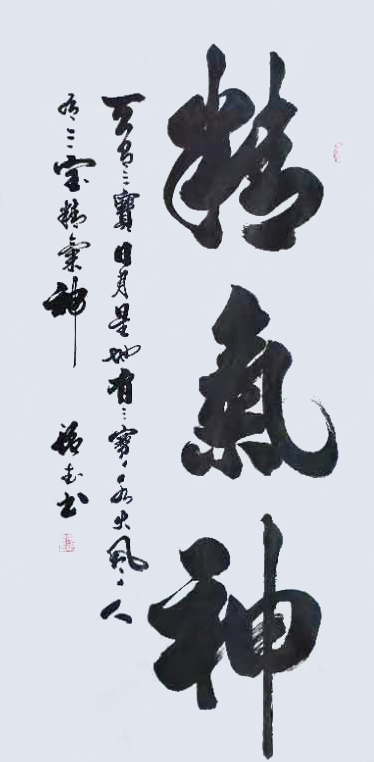 精氣神
天有三寶日月星地有三寶水火風人
有三宝精氣神
书